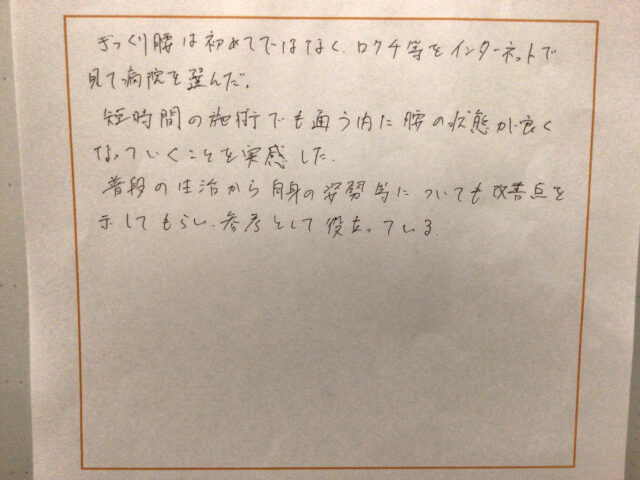 ぎっくり腰は初めてではなく、ロクチ等をインターネットで
見て病院を選んだ。
短時間の施術でも通う内に腰の状態が良く
なっていくことを実感した.
普段の生活から自身の姿勢等についても改善点を
示してもらい、参考として役立っている.